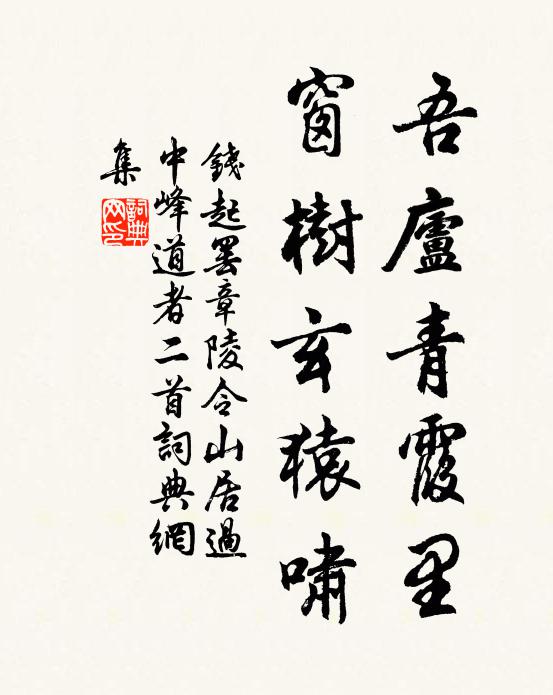 吾廬青霞里
窗樹玄猿嘯
錢起罢章陵令山居過
中峰道者二首詞典網
集
詞典網印